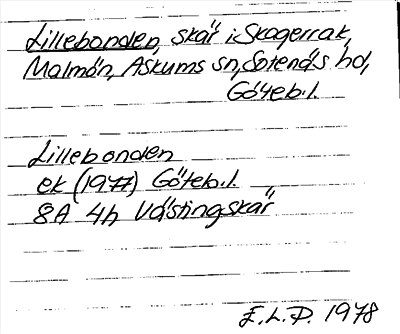 Lillebonden, skär i Skagerrak,
Malmön, Askums sn, Sotenäs hd,
Göteb.l.
Lillebonden
ek (1977) Göteb.l.
8A 4h Västingskär
E.L.P. 1978